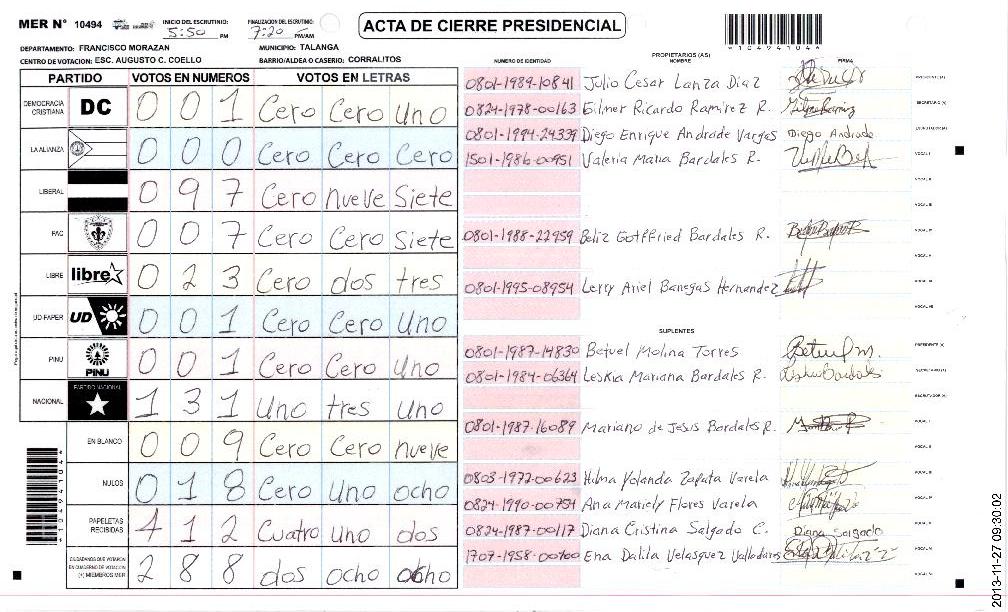 MER N° 10494
INICIO DEL ESCRUTINIO: 5:50 PM
FINALIZACION DEL ESCRUTINIO: 7:20 PM/AM
ACTA DE CIERRE PRESIDENCIAL
*10494104*
DEPARTAMENTO: FRANCISCO MORAZAN
MUNICIPIO: TALANGA
CENTRO DE VOTACION: ESC. AUGUSTO C. COELLO
BARRIO/ALDEA O CASERIO: CORRALITOS
PARTIDO VOTOS EN NUMEROS VOTOS EN LETRAS
DEMOCRACIA CRISTIANA DC 0 0 1 Cero Cero Uno
LA ALIANZA 0 0 0 Cero Cero Cero
LIBERAL 0 9 7 Cero nueve Siete
FAC 0 0 7 Cero Cero Siete
LIBRE libre 0 2 3 Cero dos tres
UD-FAPER UD 0 0 1 Cero Cero Uno
PINU PINU 0 0 1 Cero Cero Uno
NACIONAL PARTIDO NACIONAL 1 3 1 Uno tres Uno
EN BLANCO 0 0 9 Cero Cero nueve
NULOS 0 1 8 Cero Uno ocho
PAPELETAS RECIBIDAS 4 1 2 Cuatro Uno dos
CIUDADANOS QUE VOTARON EN CUADERNO DE VOTACION (+) MIEMBROS MER 2 8 8 dos ocho ocho
PROPIETARIOS (AS)
NUMERO DE IDENTIDAD NOMBRE FIRMA
0801-1989-10841 Julio Cesar Lanza Diaz PRESIDENTE (A)
0824-1978-00163 Gilmer Ricardo Ramirez R. SECRETARIO (A)
0801-1994-24339 Diego Enrique Andrade Vargas Diego Andrade ESCRUTADOR (A)
1501-1986-00951 Valeria Maria Bardales R. VOCAL I
VOCAL II
0801-1988-22959 Beliz Gottfried Bardales R. VOCAL III
VOCAL IV
0801-1995-08954 Lerry Ariel Banegas Hernandez
SUPLENTES
0801-1987-14830 Betuel Molina Torres PRESIDENTE (A)
0801-1984-06364 Leskia Mariana Bardales R. SECRETARIO (A)
ESCRUTADOR (A)
0801-1987-16089 Mariano de Jesus Bardales R. VOCAL I
VOCAL II
0803-1972-00623 Hilma Yolanda Zapata Varela VOCAL III
0824-1990-00754 Ana Mariely Flores Varela
0824-1987-00117 Diana Cristina Salgado C. Diana Salgado
1707-1958-00700 Ena Dalila Velasquez Valladares
*10494104*
2013-11-27 09:30:02